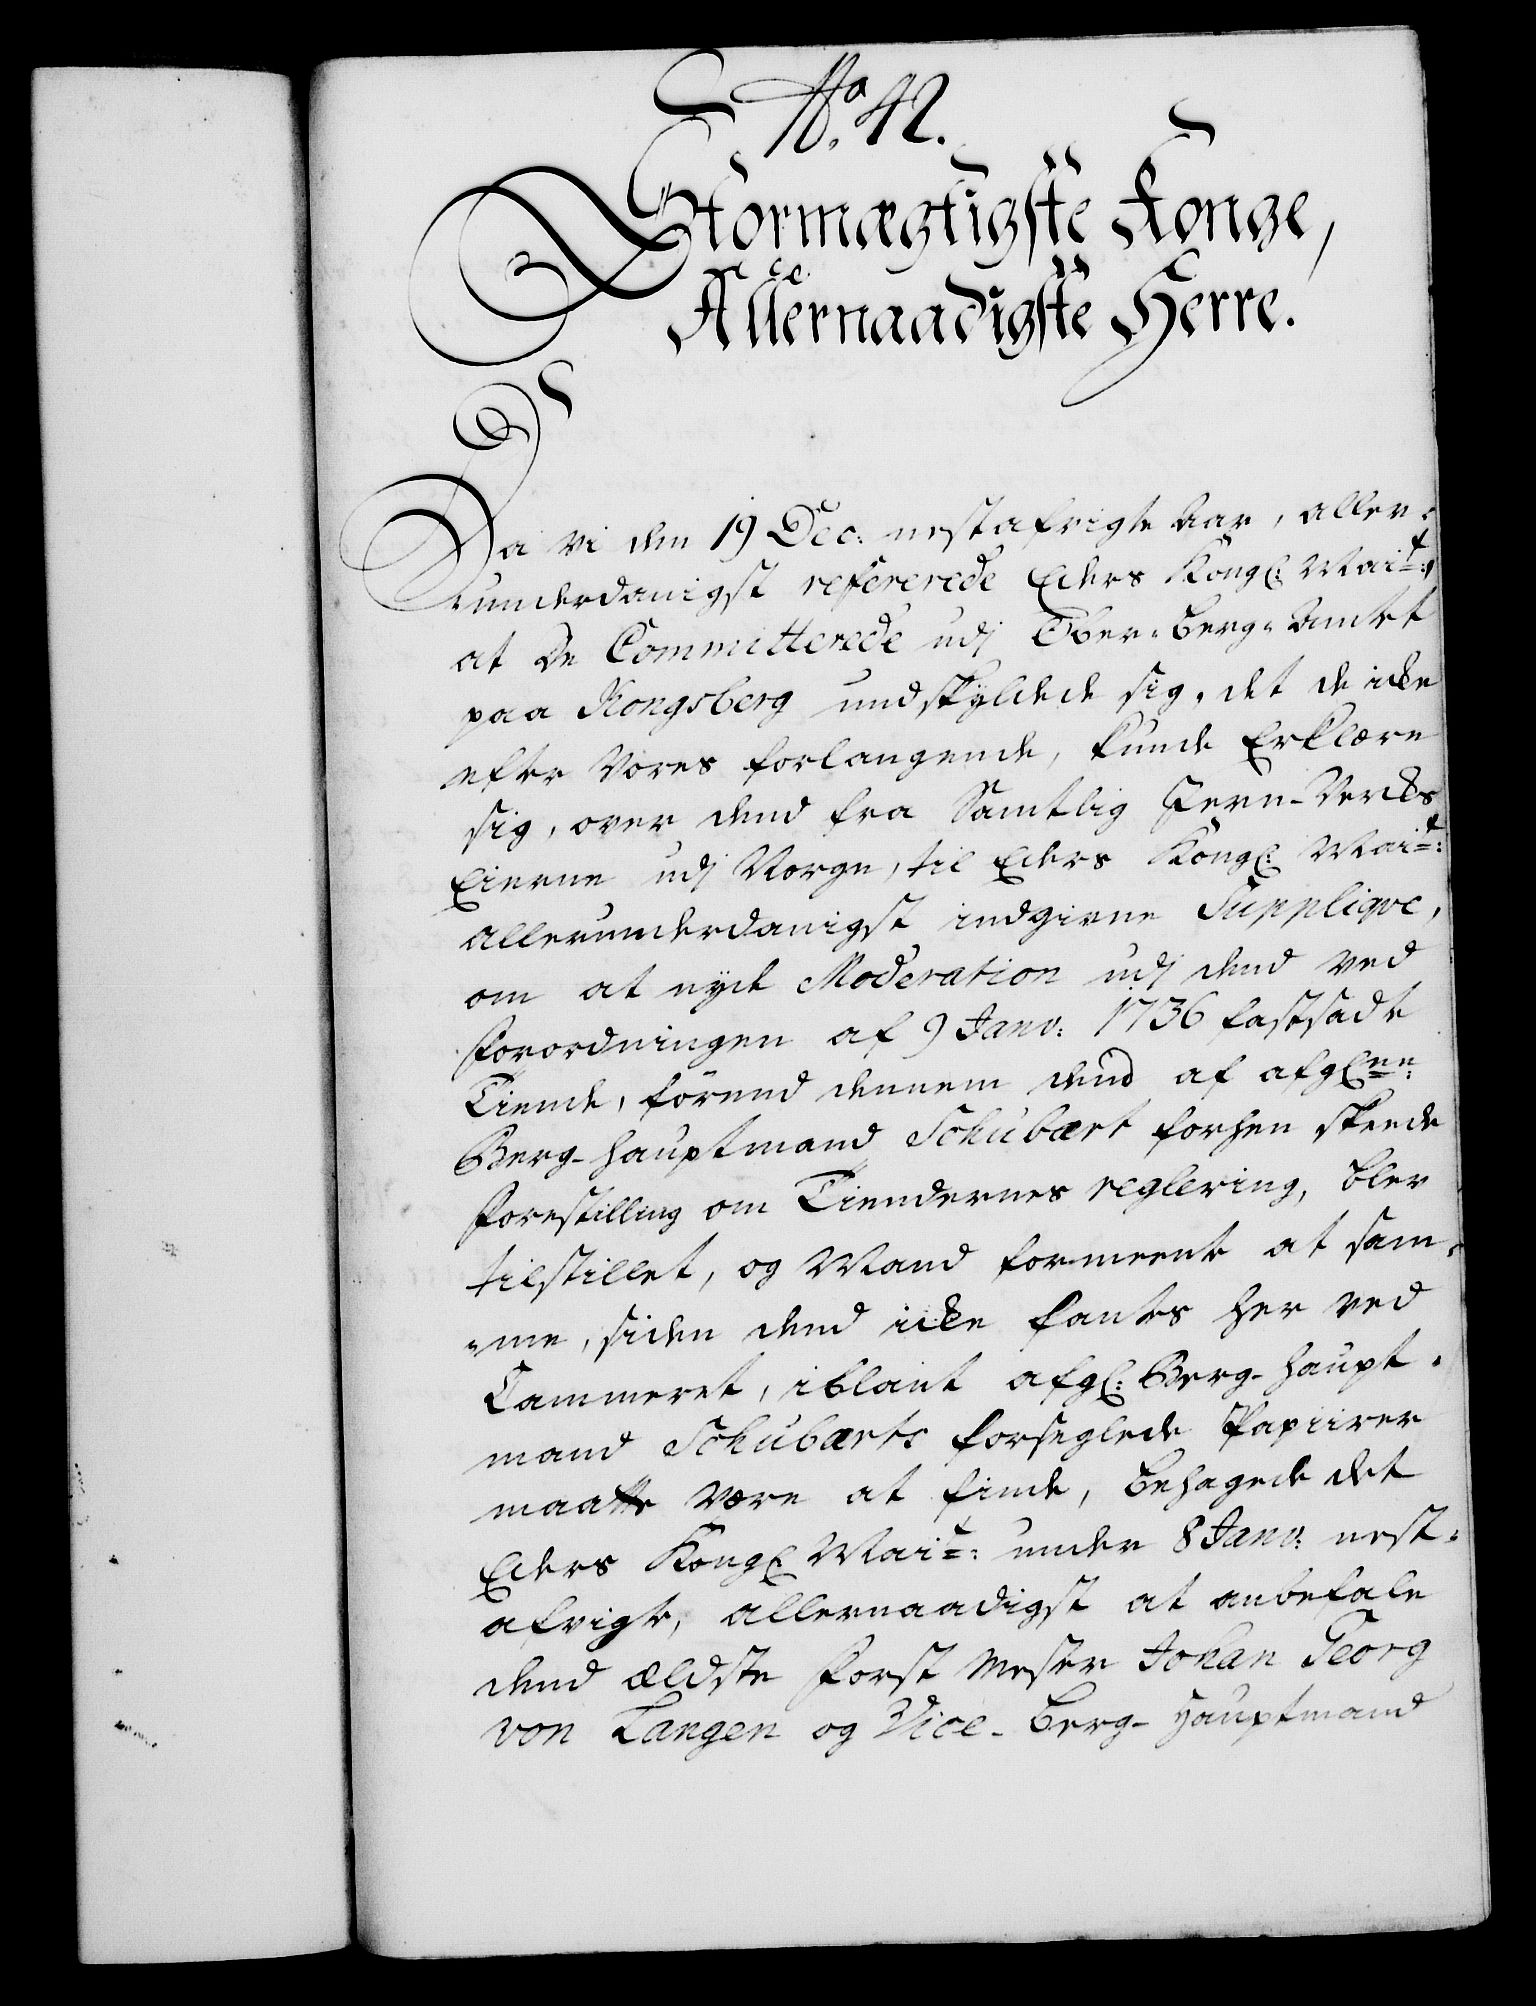 No. 42.
Stormægtigste Konge,
Allernaadigste Herre.
Da vi den 19 Dec: nestafvigte Aar, aller-
underdanigst refererede Eders Kongl: Mait:,
at De Committerede udj Ober-Berg-Amtet
paa Kongsberg undskyldede sig, det de icke
efter Vores forlangende, kunde Erklære
sig, over dend fra Samtlig Jern-Verks
Eierne udj Norge, til Eders Kongl: Mait:
allerunderdanigst indgivne Supplique,
om at nyde Moderation udj dend ved
Forordningen af 9 Janv: 1736 fastsadte
Tiende, förend dennem dend af afgl:ne
Berg-Hauptmand Schubært forhen skeede
Forestilling om Tiendernes reglering, blev
tilstillet, og Mand formeente at sam-
me, siden dend icke fantes her ved
Cammeret, iblant afgl: Berg-Haupt-
mand Schubærts forseglede Papiirer
maatte være at finde, behagede det
Eders Kongl: Mait: under 8 Janv: nest-
afvigt, allernaadigst at anbefale
dend ældste Forst Mester Johan Georg
von Langen og Vice-Berg-Hauptmand